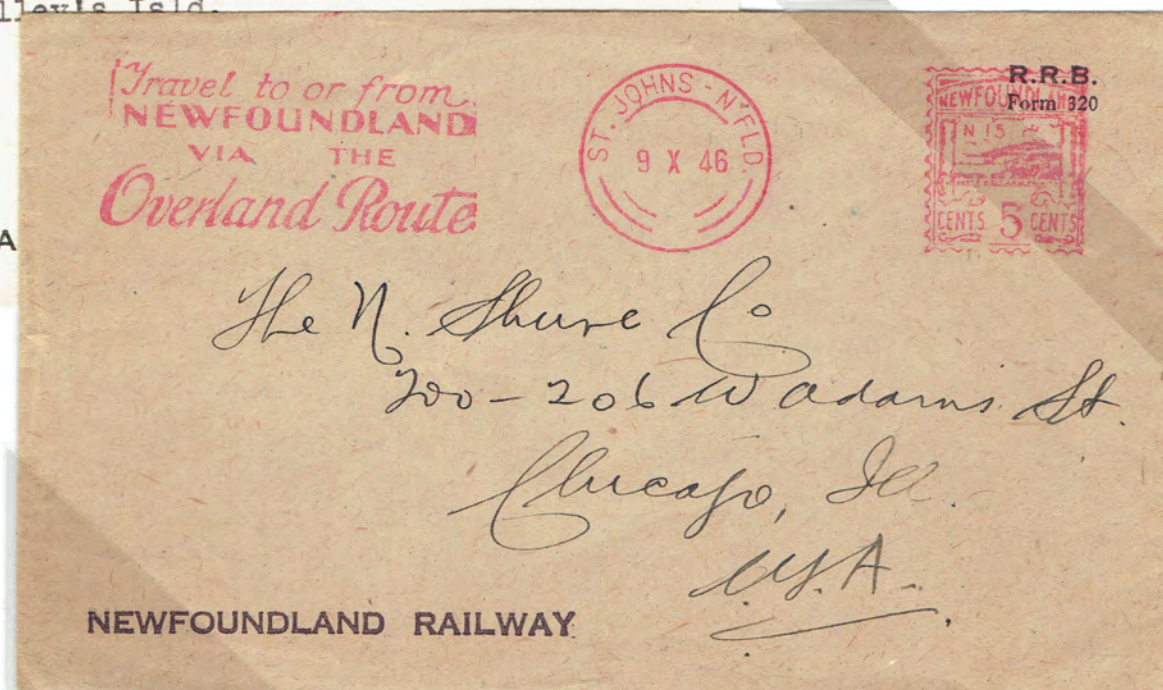 lley's Isld.
Travel to or from
NEWFOUNDLAND
VIA THE
Overland Route
ST. JOHNS - N'FLD.
9 X 46
R.R.B.
Form 320
NEWFOUNDLAND
N 15
CENTS 5 CENTS
A
The N. Shure Co
200-206 W Adams St.
Chicago, Ill.
U.S.A.
NEWFOUNDLAND RAILWAY